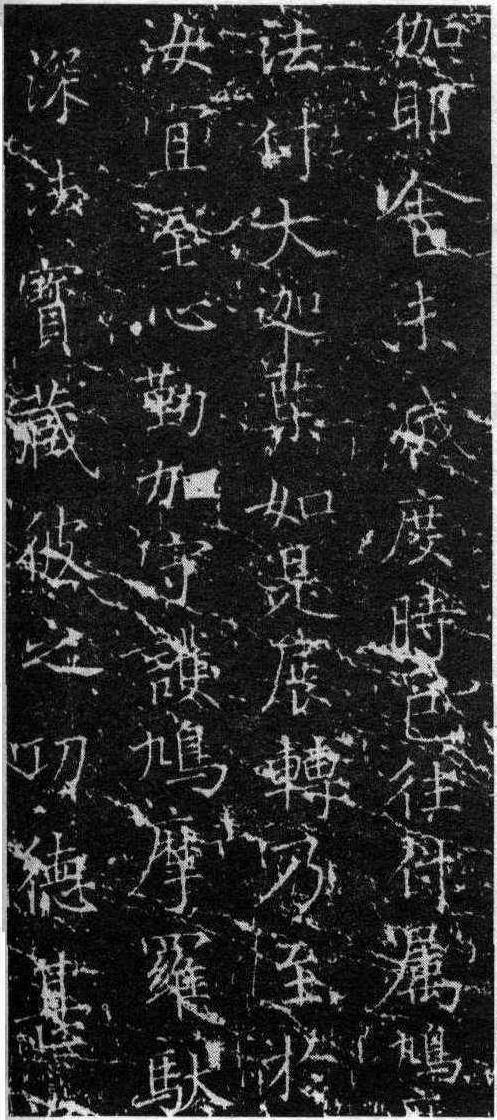 伽耶舍未滅度時付屬鳩
法付大迦葉如是展轉乃至於
汝且至心勤加守護鳩摩羅馱
深法寶藏彼之功德甚